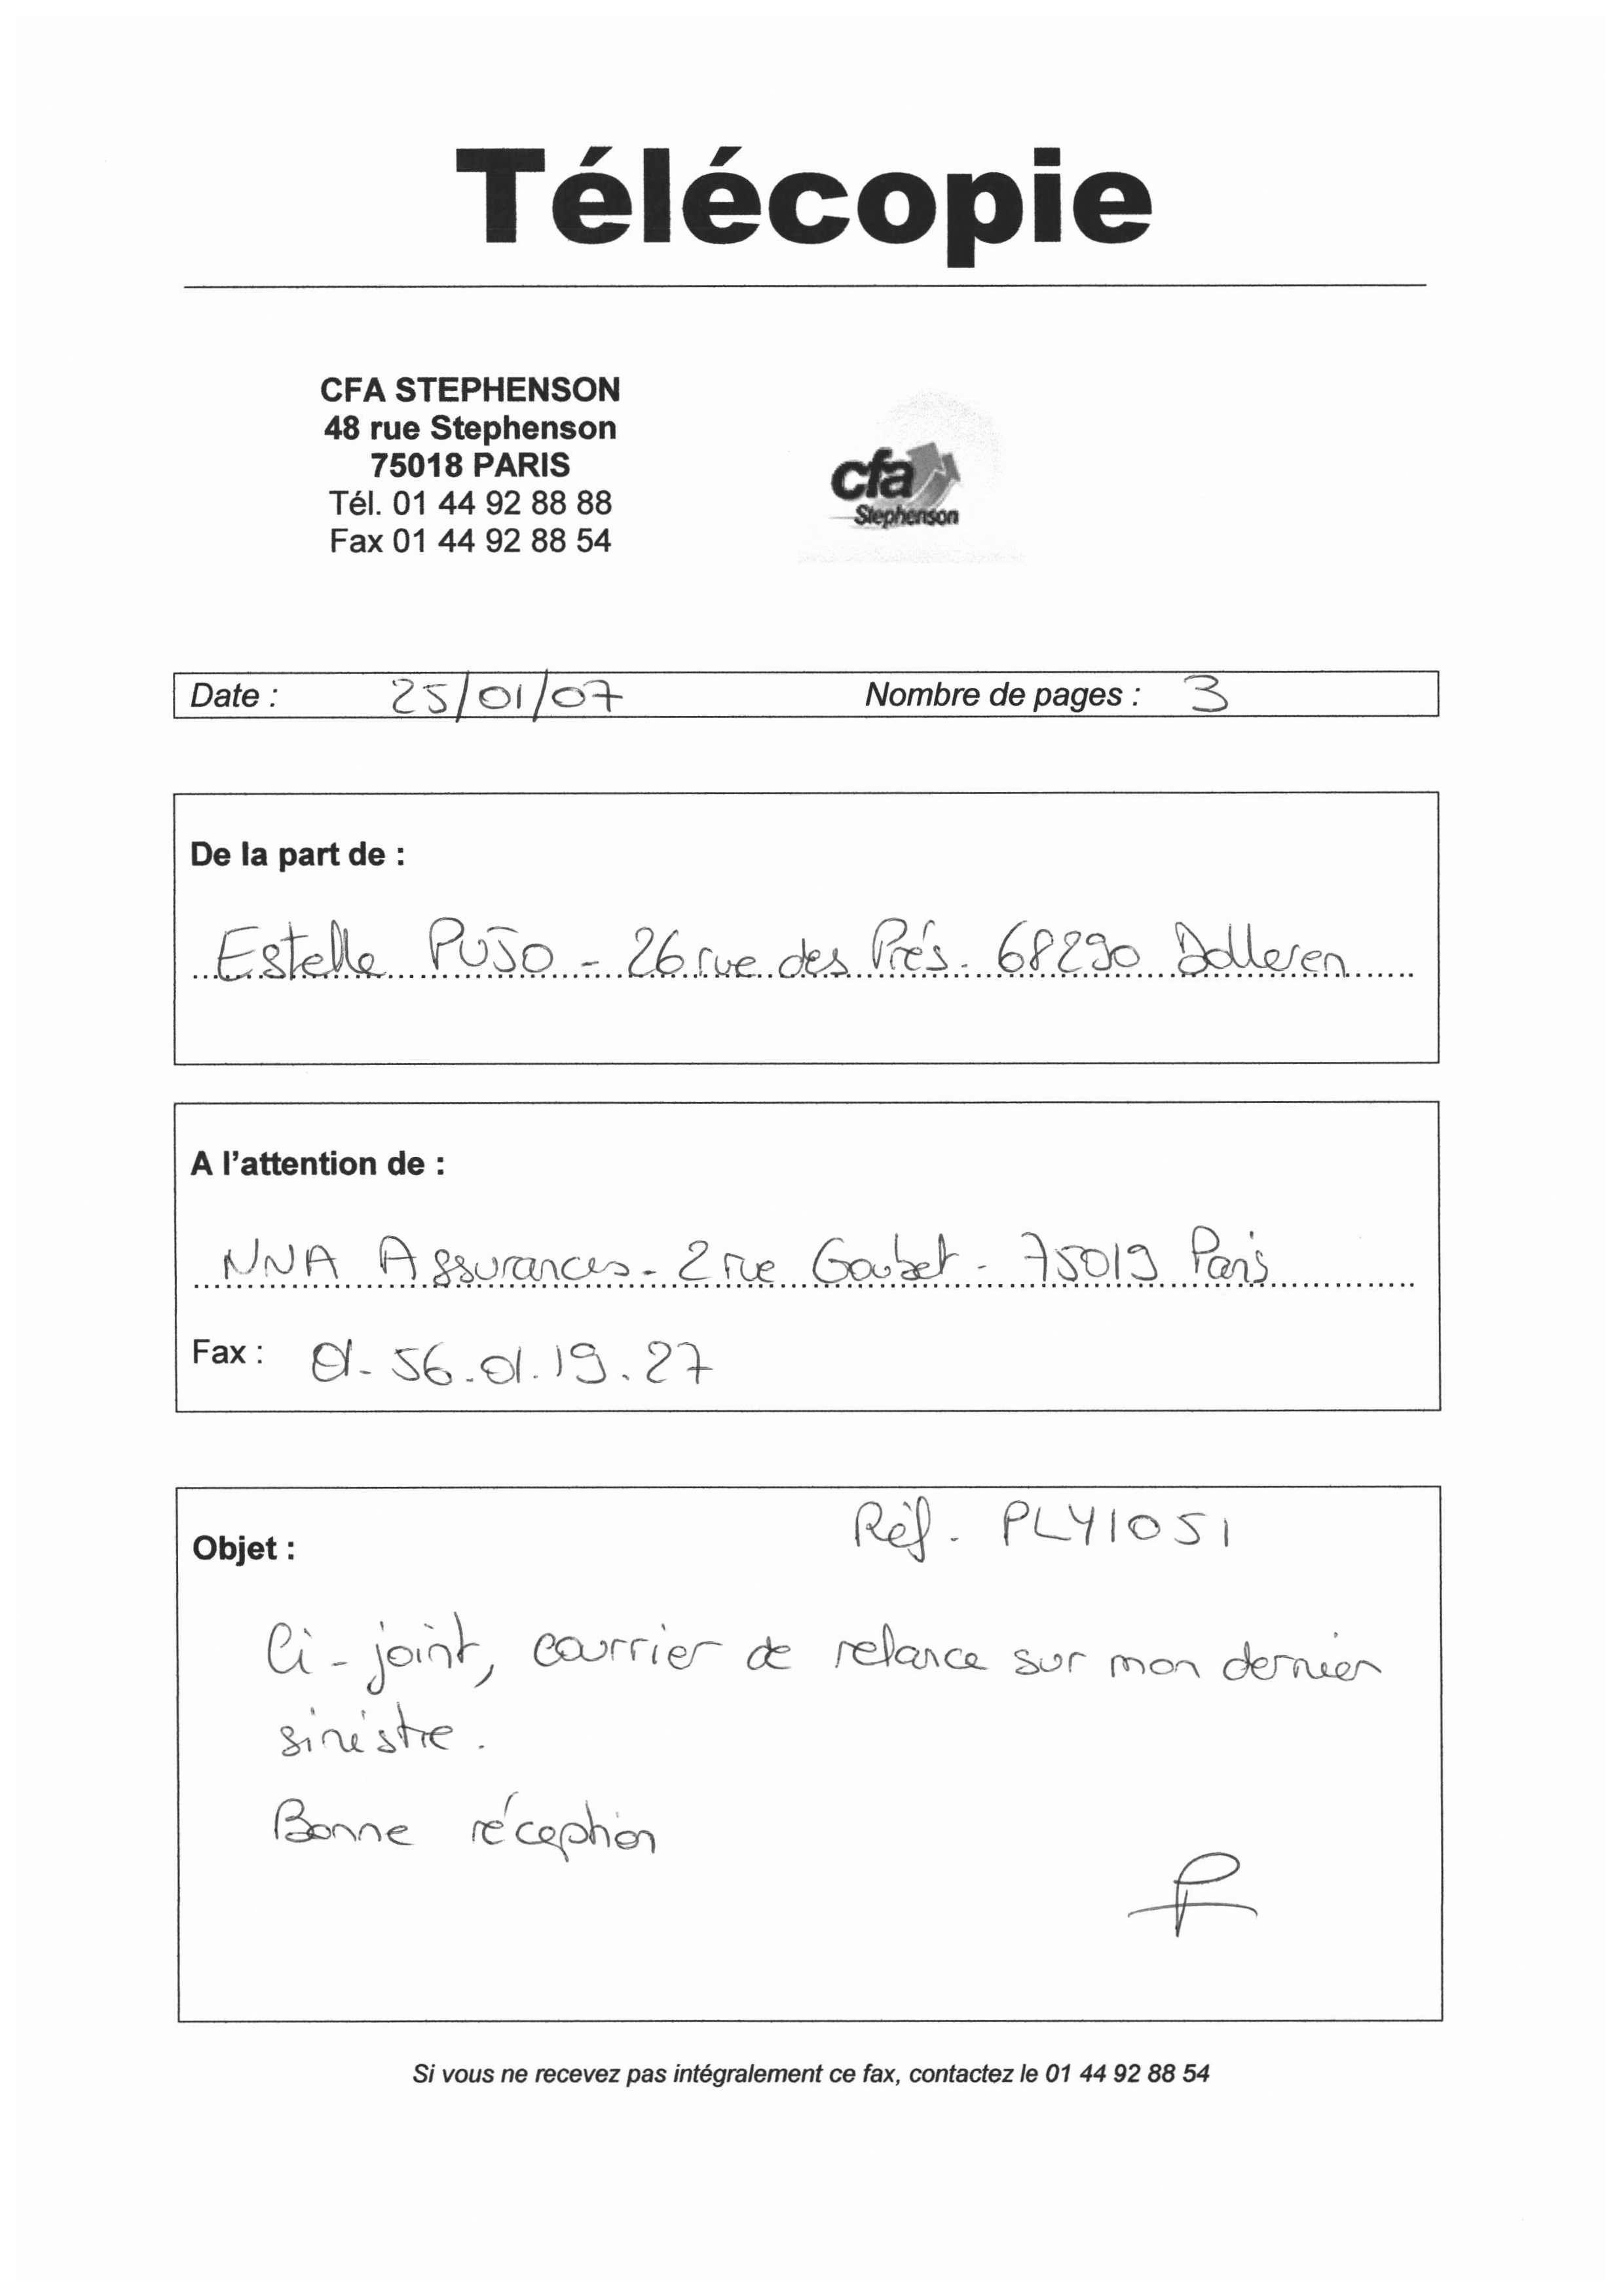 Télécopie
CFA STEPHENSON
48 rue Stephenson
75018 PARIS
Tél. 01 44 92 88 88
Fax 01 44 92 88 54
cfa
Stephenson
Date : 25/01/07 Nombre de pages : 3
De la part de :
Estelle PUJO - 26 rue des Prés - 68290 Dolleren
A l'attention de :
NNA Assurances - 2 rue Goubet - 75019 Paris
Fax : 01-56.01.19.27
Réf. PLY1051
Objet :
Ci-joint, courrier de relance sur mon dernier
sinistre.
Bonne réception
Si vous ne recevez pas intégralement ce fax, contactez le 01 44 92 88 54